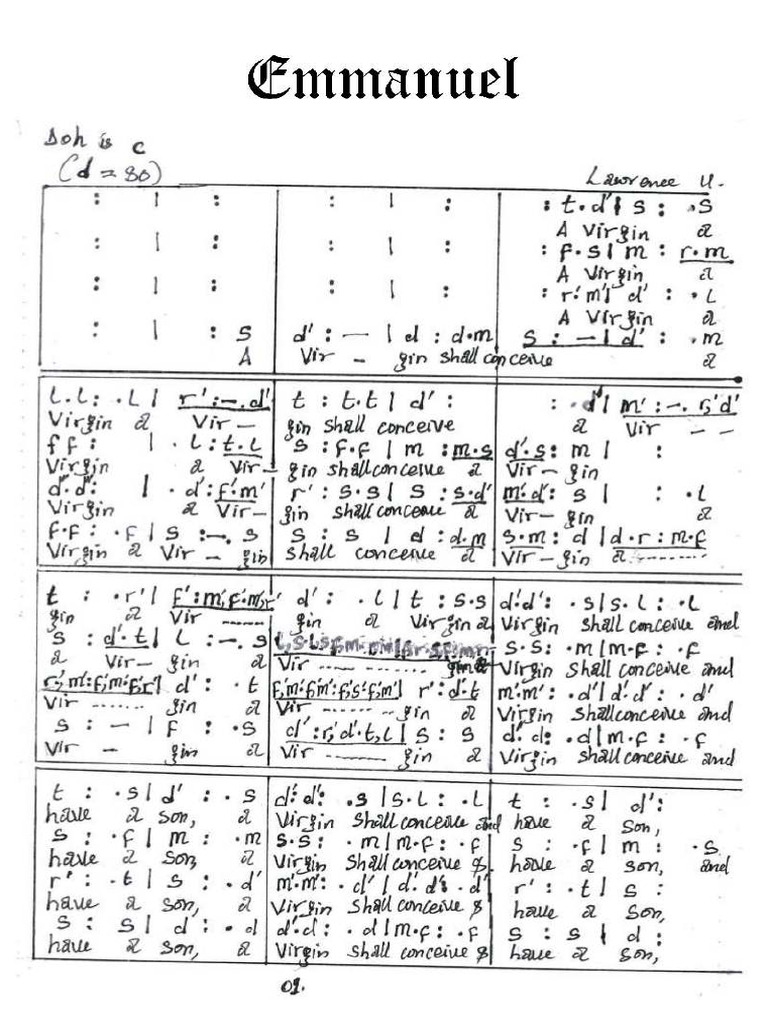 Emmanuel
Doh is C
(d = 80)
Lawrence U.
: | : : | : : t.d'| s : .s
A Virgin a
: | : : | : : f.s| m : r.m
A Virgin a
: | : : | : : r'.m'| d' : .l
A Virgin a
: | : s d' : — | d : d.m s : — | d' : .m
A Vir - gin shall conceive a
l.l : .l | r' : -. d' t : t.t | d' : : .d'| m' : -. r',d'
Virgin a Vir - gin shall conceive a Vir - -
f f : | . l : t.l s : f.f | m : m.s d'.s : m | :
Virgin a Vir - gin shall conceive a Vir - gin
d'.d' : | . d' : f'.m' r' : s.s | s : s.d' m'.d' : s | : .l
Virgin a Vir - gin shall conceive a Vir - gin a
f.f : .f | s : -. s s : s | d : d.m s.m : d | d.r : m.f
Virgin a Vir - gin shall conceive a Vir - gin a
t : .r'| d' : .l | t : s.s d'.d' : .s | s.l : .l
gin a Vir gin a Virgin a Virgin shall conceive and
s : d'.t | l : -. s s.s : .m | m.f : .f
a Vir - gin a Vir gin a Virgin shall conceive and
d' : .t r' : d'.t m'.m' : .d' | d'.d' : .d'
Vir gin a Vir gin a Virgin shall conceive and
s : - | f : .s d' : r',d'.t,l | s : s d'.d : .d | m.f : .f
Vir - gin a Vir gin a Virgin shall conceive and
t : .s | d' : .s d'.d' : .s | s.l : .l t : .s | d' :
have a son, a Virgin shall conceive and have a son,
s : .f | m : .m s.s : .m | m.f : .f s : .f | m : .s
have a son, a Virgin shall conceive & have a son, and
r' : .t | s : .d' m'.m' : .d' | d'.d' : .d' r' : .t | s :
have a son, a Virgin shall conceive & have a son,
s : s | d' : .d d'.d : .d | m.f : .f s : s | d :
have a son, a Virgin shall conceive & have a son,
01.